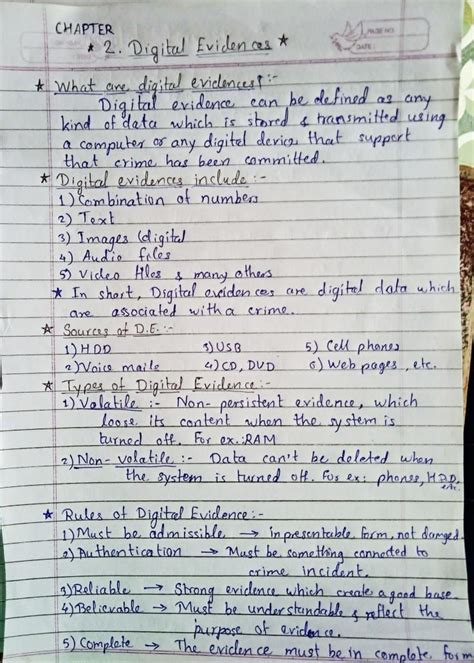 CHAPTER
★ 2. Digital Evidences ★
PAGE NO.
DATE:
★ What are digital evidences? :-
Digital evidence can be defined as any
kind of data which is stored & transmitted using
a computer or any digital device that support
that crime has been committed.
★ Digital evidences include :-
1) Combination of numbers
2) Text
3) Images (digital
4) Audio files
5) Video files & many others
★ In short, Digital evidences are digital data which
are associated with a crime.
★ Sources of D.E. :-
1) HDD 3) USB 5) Cell phones
2) Voice mails 4) CD, DVD 6) Web pages, etc.
★ Types of Digital Evidence :-
1) Volatile :- Non-persistent evidence, which
loose its content when the system is
turned off. For ex.: RAM
2) Non-volatile :- Data can't be deleted when
the system is turned off. For ex: phones, HDD
etc.
★ Rules of Digital Evidence :-
1) Must be admissible → in presentable form, not damged.
2) Authentication → Must be something connected to
crime incident.
3) Reliable → Strong evidence which create a good base
4) Believable → Must be understandable & reflect the
purpose of evidence.
5) Complete → The evidence must be in complete form